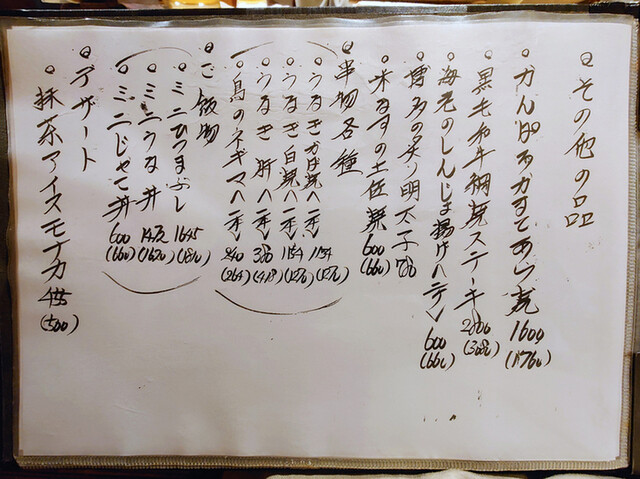 その他の品
かんぱちかますてあら煮 1600 (1760)
黒毛和牛網焼ステーキ 2800 (3080)
海老のしんじょ揚げ 600 (660)
博多の炙り明太子
米なすの土佐焼 600 (660)
串物各種
うなぎかば焼 (一本) 1154 (1270)
うなぎ白焼 (一本) 1154 (1270)
うなぎ肝 (一本) 380 (418)
鳥のネギマ (一本) 240 (264)
ご飯物
ミニひつまぶし 1645 (1810)
ミニうな丼 1472 (1620)
ミニじゃこ丼 600 (660)
デザート
抹茶アイスモナカ 455 (500)